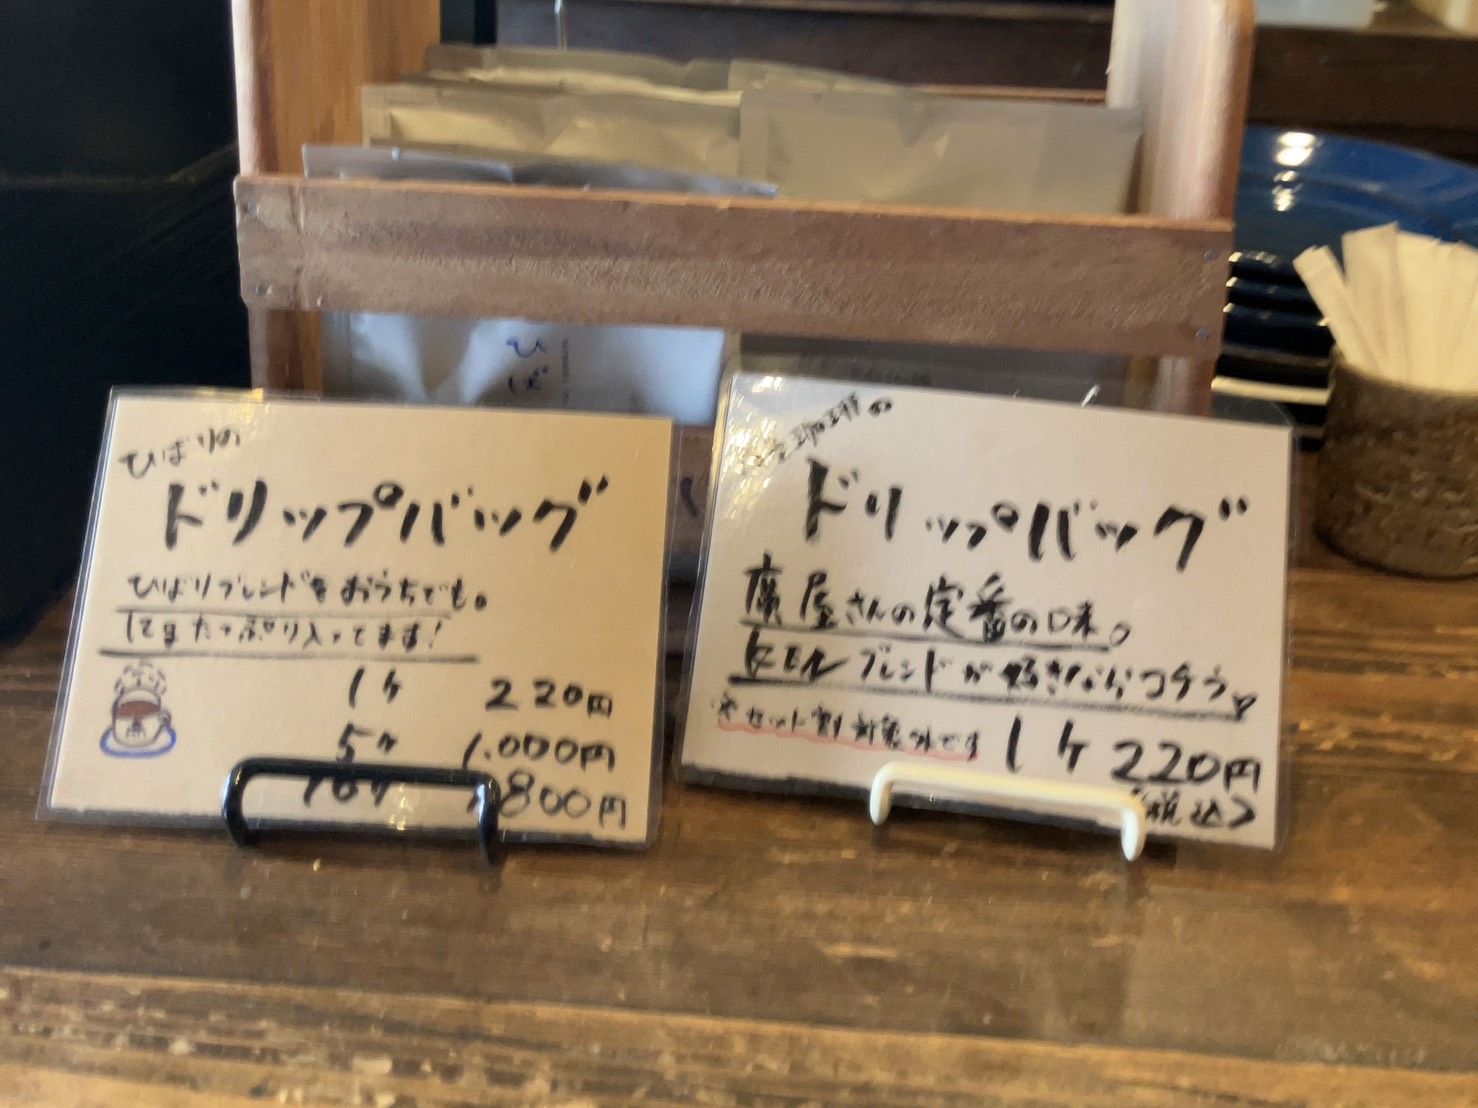 ひばりの
ドリップバッグ
ひばりブレンドをおうちでも。
12gたっぷり入ってます!
1ケ 220円
5ケ 1,000円
10ケ 1,800円
珈琲の
ドリップバッグ
廣屋さんの定番の味。
ブレンドが好きならコチラ
※セット割対象外です
1ケ 220円
<税込>
ひば